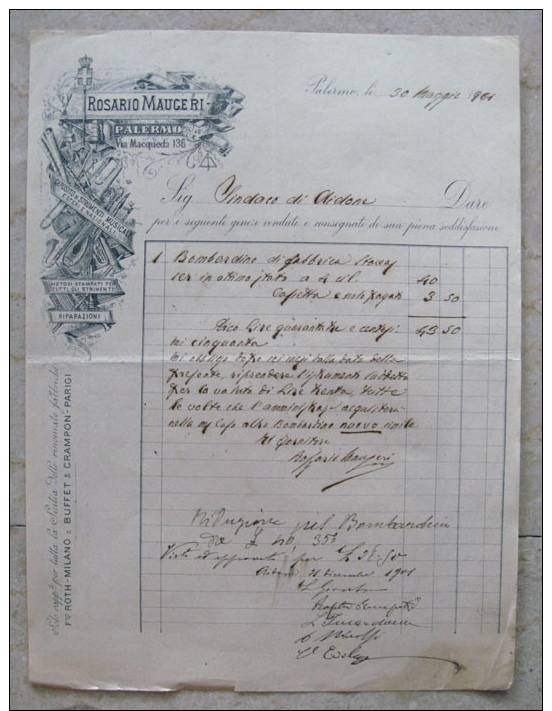 ROSARIO MAUGERI
PALERMO
Via Macqueda 136
DEPOSITO STRUMENTI MUSICALI
ESTERI E NAZIONALI
METODI STAMPATI PER
TUTTI GLI STRUMENTI
RIPARAZIONI
Palermo, li 30 Maggio 1901
Sig Sindaco di Aidone Dare
per i seguente generi venduti e consegnati di sua piena soddisfazione
1 Bombardino di fabbrica
in ottimo stato a 4 cil. 40
Cassetta e nolo pagato 3 50
Dico Lire quarantatre e centesi 43 50
mi cinquanta
Mi obbligo dopo sei mesi dalla data della
presente, riprendere l'istrumento suddetto
per la valuta di Lire trenta, tutte
le volte che l'amministraz. acquisterà
nella mia Casa altro Bombardino nuovo simile
Il fornitore
Rosario Maugeri
Riduzione pel Bombardino
da £ 40, 35
Visto ed approvato per £ 38.50
Aidone 21 dicembre 1901
Solo rapp.te per tutta la Sicilia delle rinomate fabbriche
F.lli ROTH - MILANO e BUFFET & CRAMPON - PARIGI